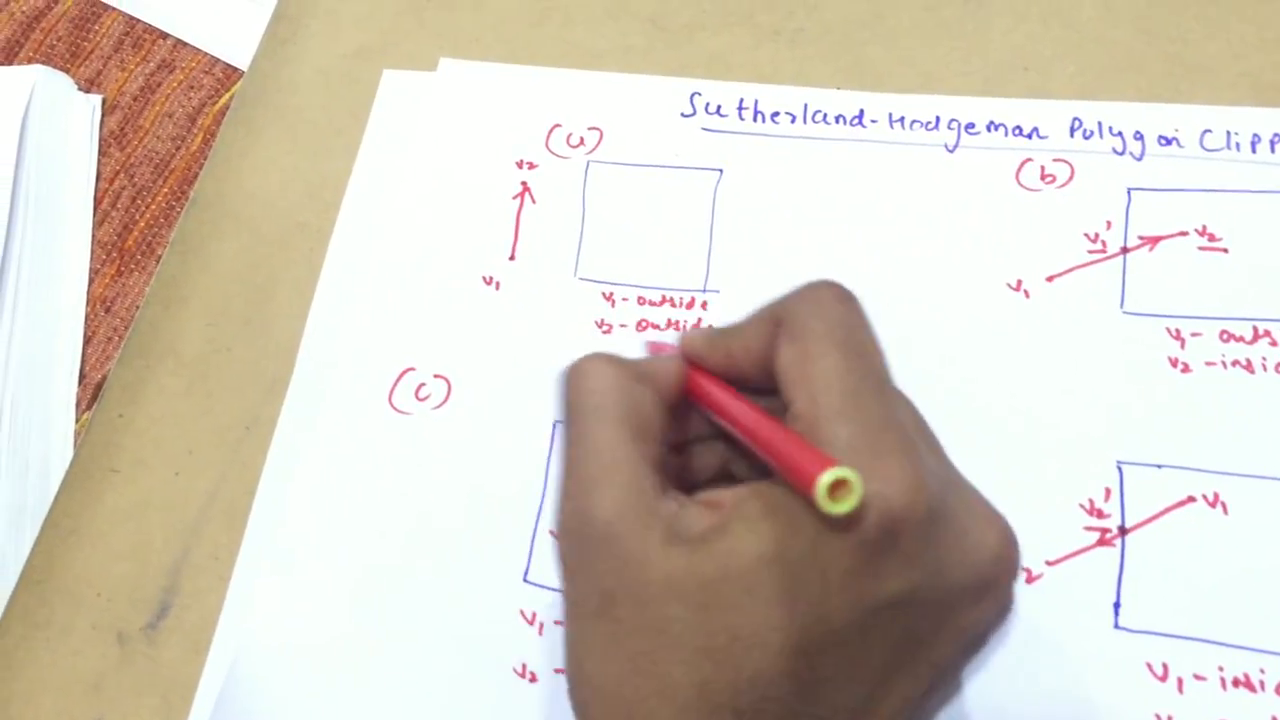 Sutherland-Hodgeman Polygon Clipp
(a)
v2
v1
v1 - outside
v2 - outside
(b)
v1'
v2
v1
v1 - outs
v2 - insid
(c)
v1 -
v2 -
v2'
v1
2
v1 - insi